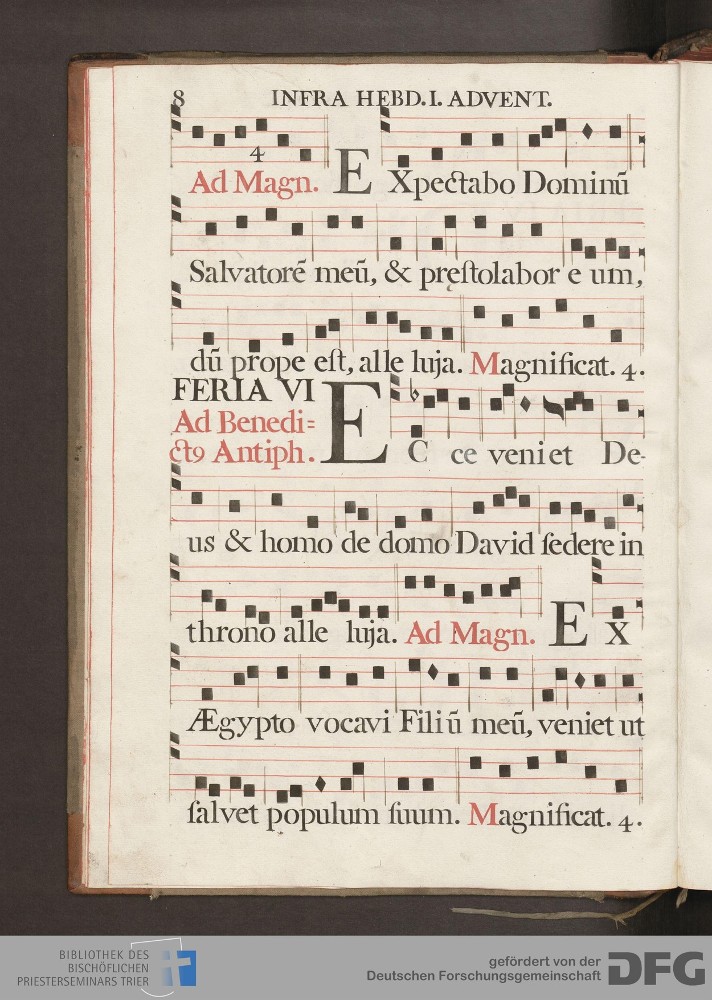 8 INFRA HEBD. I. ADVENT.
4
Ad Magn. EXpectabo Dominũ
Salvatorẽ meũ, & pręſtolabor e um,
dũ prope eſt, alle luja. Magnificat. 4.
FERIA VI
Ad Benedi=
ct9 Antiph. EC ce veniet De-
us & homo de domo David ſedere in
throno alle luja. Ad Magn. Ex
Ægypto vocavi Filiũ meũ, veniet ut
ſalvet populum ſuum. Magnificat. 4.
BIBLIOTHEK DES
BISCHÖFLICHEN
PRIESTERSEMINARS TRIER
gefördert von der
Deutschen Forschungsgemeinschaft DFG